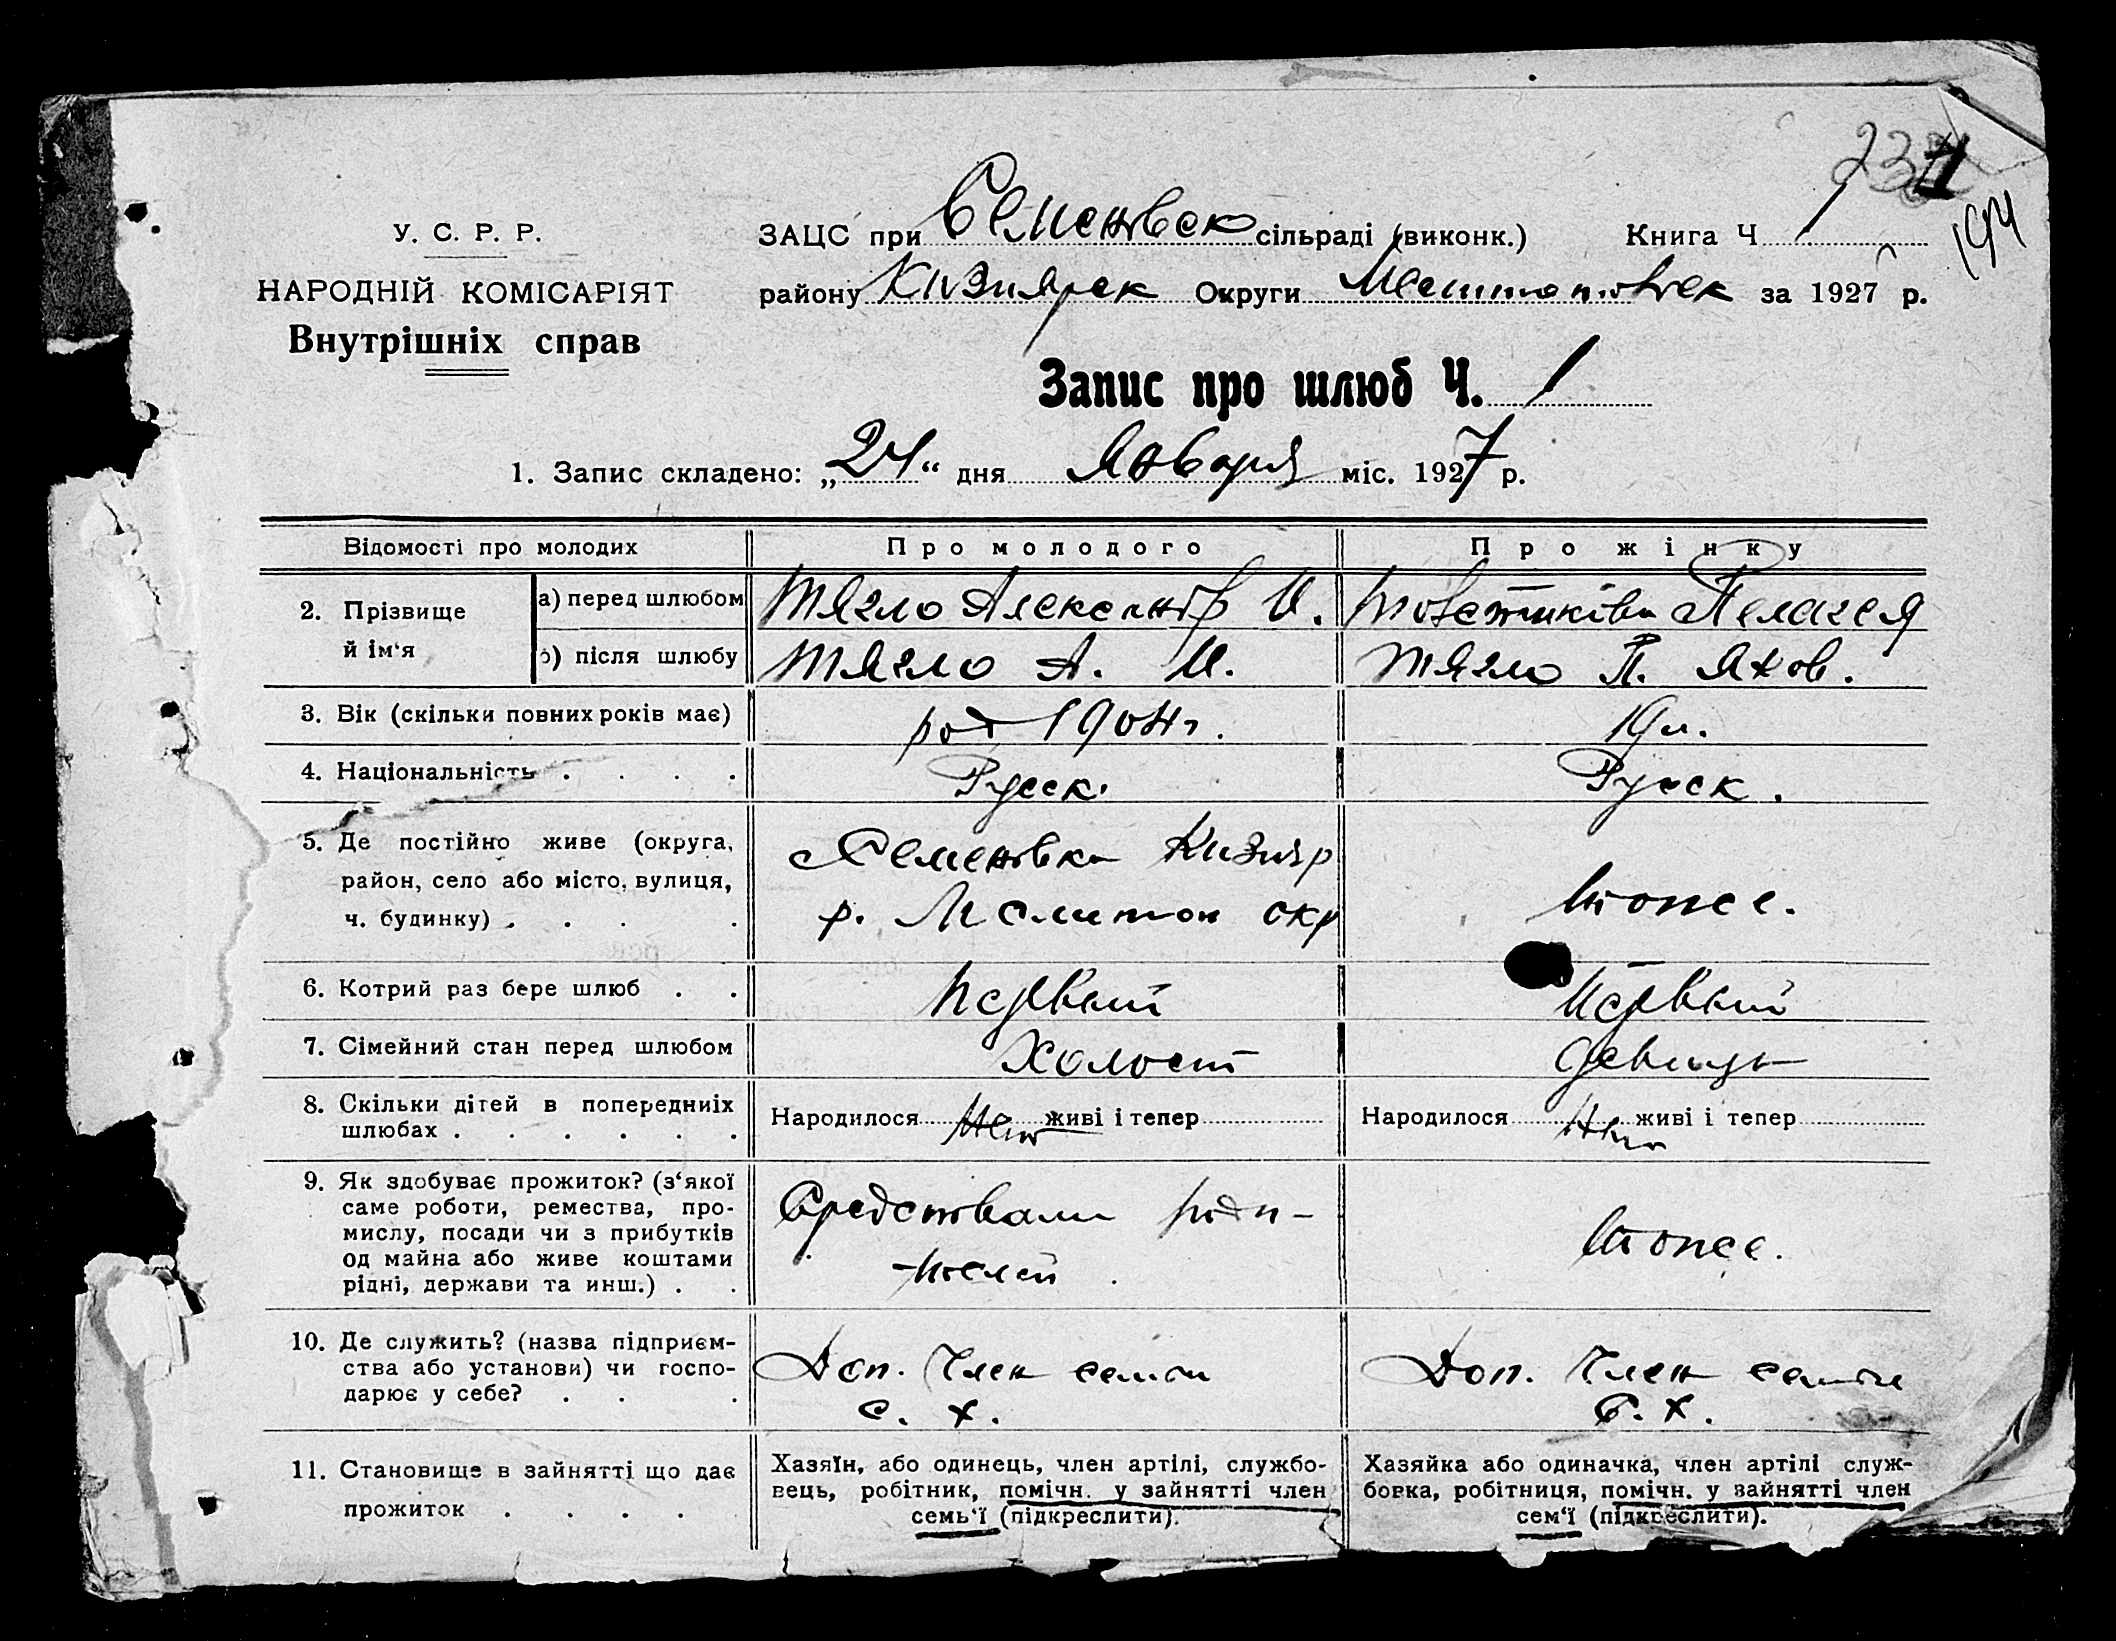 У. С. Р. Р.
НАРОДНІЙ КОМІСАРІЯТ
Внутрішніх справ
232
1
194
ЗАЦС при Семеновск сільраді (виконк.) Книга Ч 1
району Кизиярск Округи за 1927 р.
Запис про шлюб Ч. 1
1. Запис складено: „24“ дня Января міс. 1927 р.
Відомості про молодих Про молодого Про жінку
2. Прізвище й ім‘я
а) перед шлюбом Тягло Александр И. Пелагея
б) після шлюбу Тягло А. И. Тягло П. Яков.
3. Вік (скільки повних років має) род 1904 г. 19 л.
4. Національність . . . . Русск. Русск.
5. Де постійно живе (округа, Семеновка Кизияр
район, село або місто, вулиця, р. Мелитоп окр
ч. будинку) . . . . Тоже.
6. Котрий раз бере шлюб . . Первый Первый
7. Сімейний стан перед шлюбом Холост девица
8. Скільки дітей в попередніх Народилося Нет живі і тепер Народилося Нет живі і тепер
шлюбах . . . . . .
9. Як здобуває прожиток? (з‘якої Средствами роди-
саме роботи, ремества, про- -телей
мислу, посади чи з прибутків Тоже.
од майна або живе коштами
рідні, держави та инш.) . .
10. Де служить? (назва підприєм- Доп. Член семьи Доп. Член семьи
ства або установи) чи госпо- с. х. С. х.
дарює у себе? . . .
11. Становище в зайнятті що дає
прожиток . . . .
Хазяїн, або одинець, член артілі, службо-
вець, робітник, помічн. у зайнятті член
семь‘ї (підкреслити).
Хазяйка або одиначка, член артілі служ-
бовка, робітниця, помічн. у зайнятті член
сем‘ї (підкреслити).